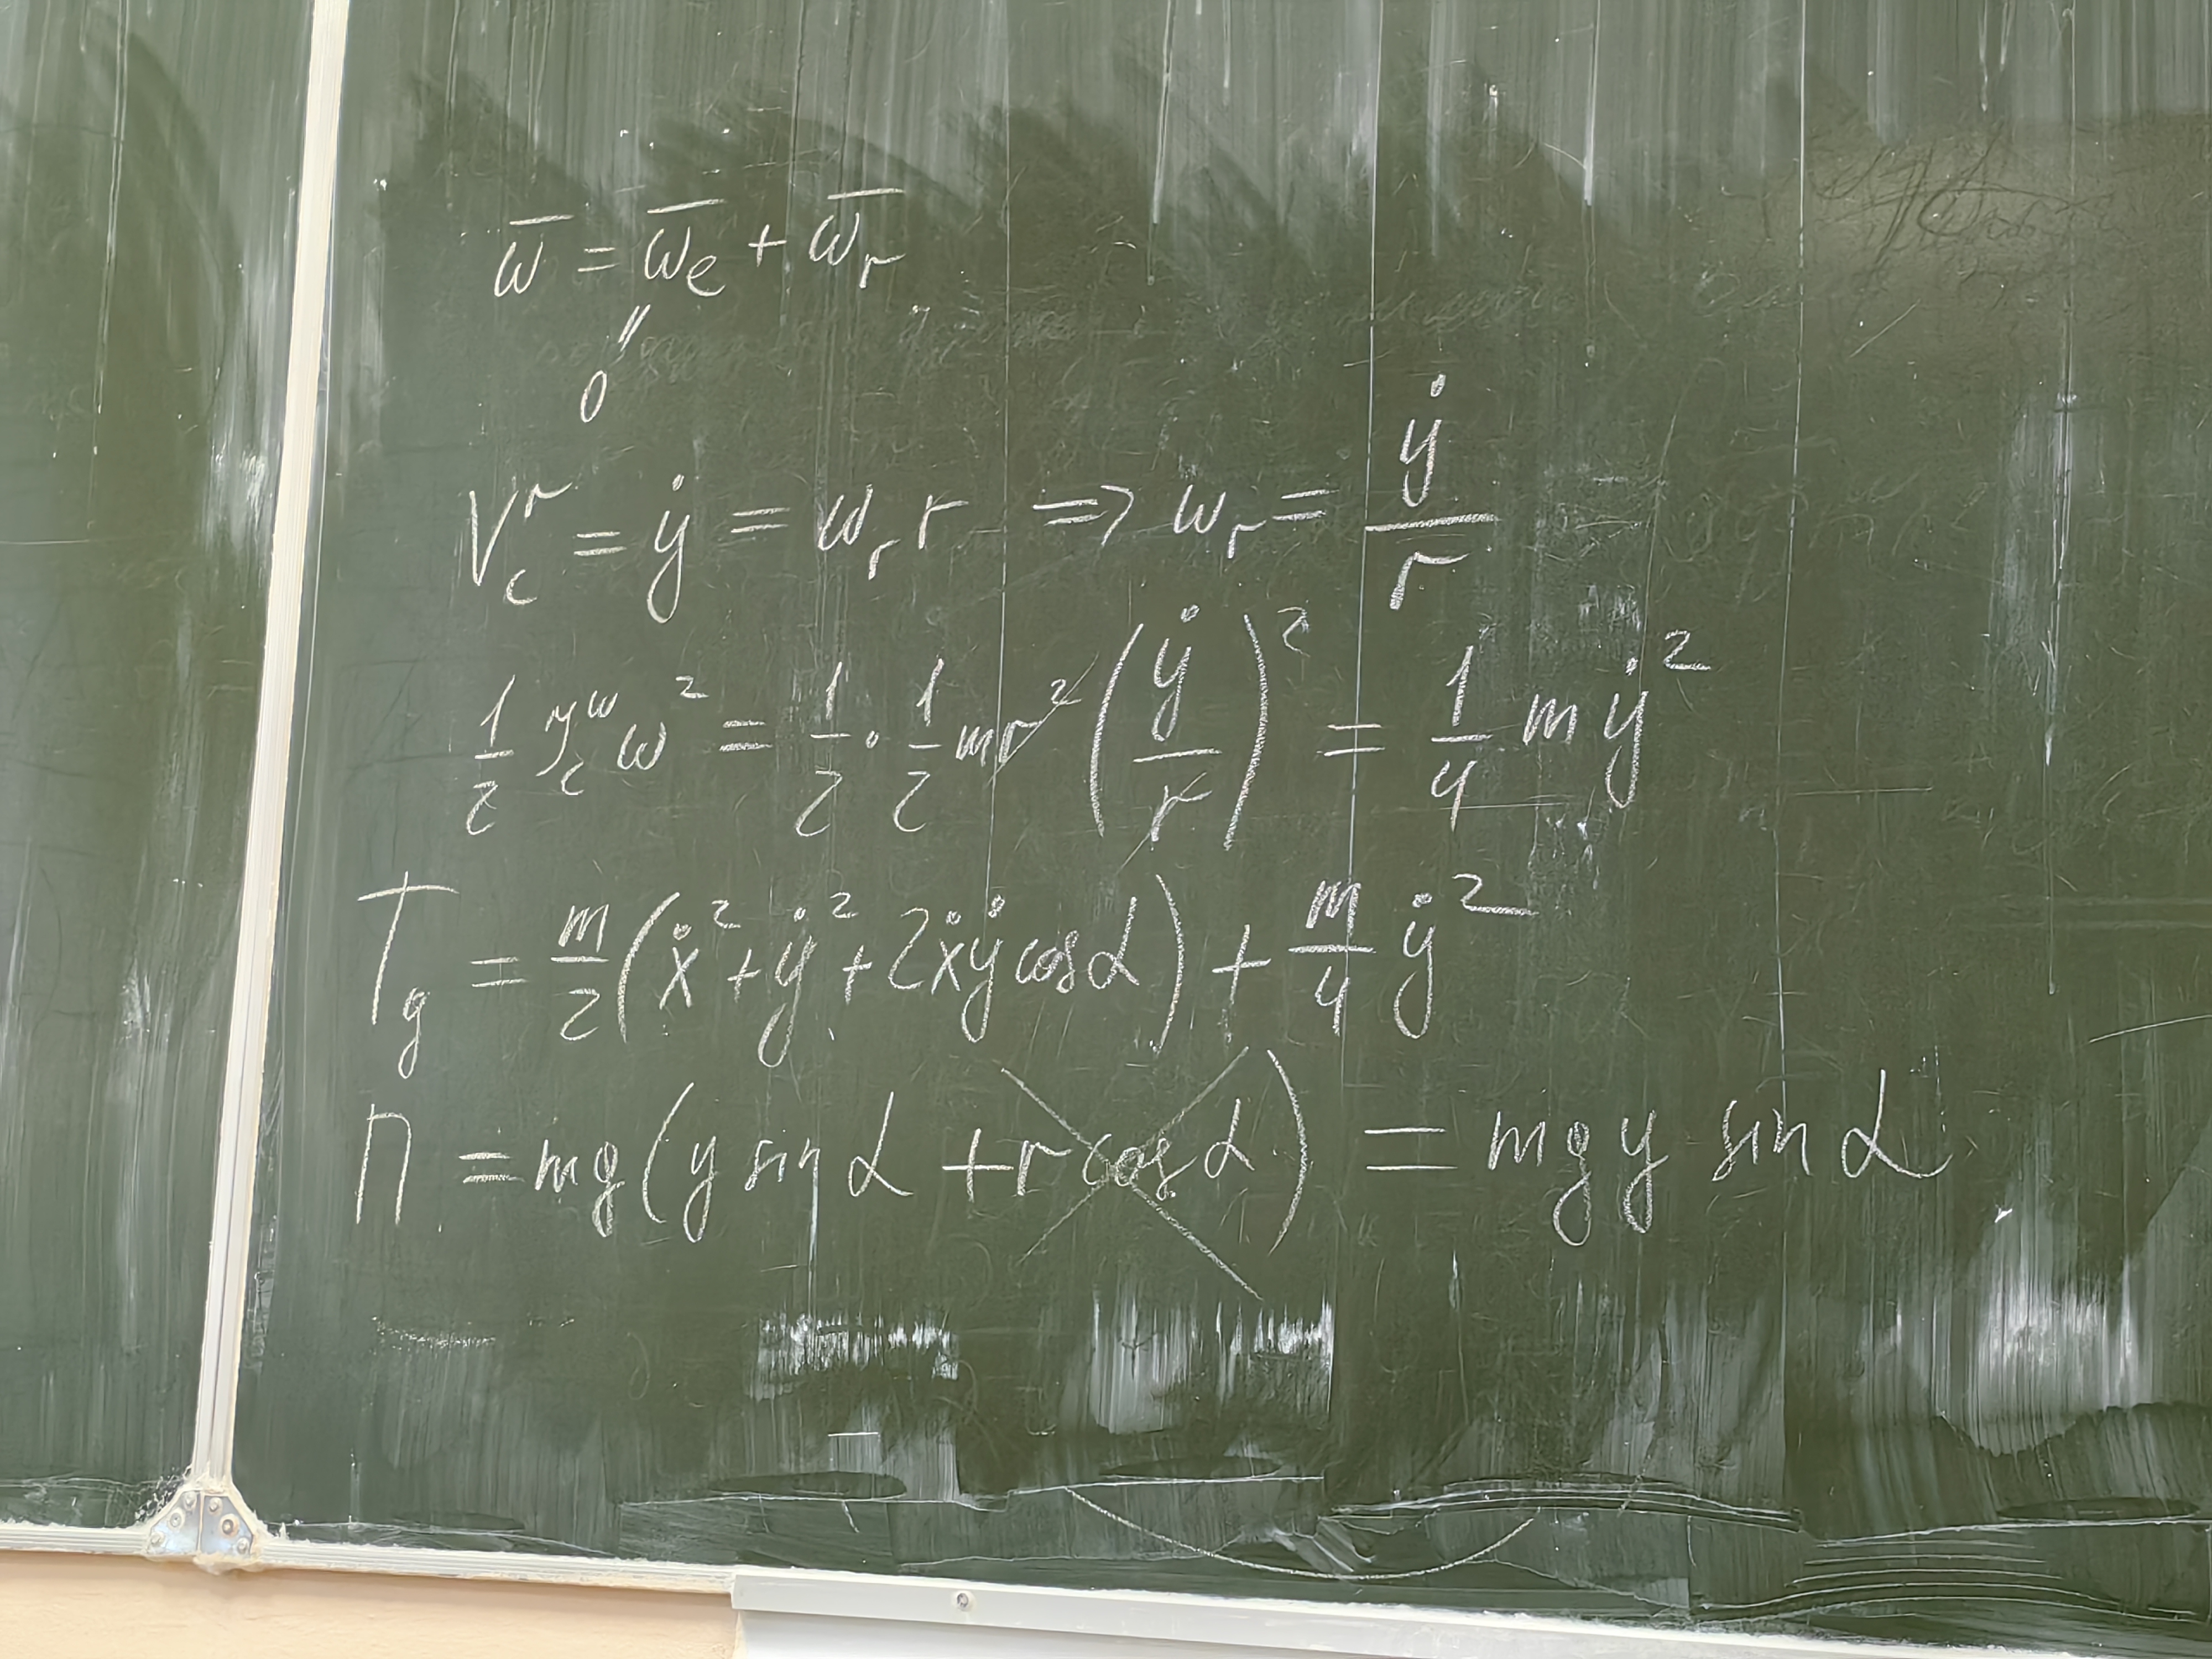 ω̅ = ω̅ₑ + ω̅ᵣ
"
0
V_c^r = ẏ = ωᵣ r ⇒ ωᵣ = ẏ/r
1/2 J_c^ω ω² = 1/2 · 1/2 mr² (ẏ/r)² = 1/4 m ẏ²
T_g = m/2 (ẋ² + ẏ² + 2ẋẏ cos α) + m/4 ẏ²
П = mg(y sin α + r cos α) = mgy sin α